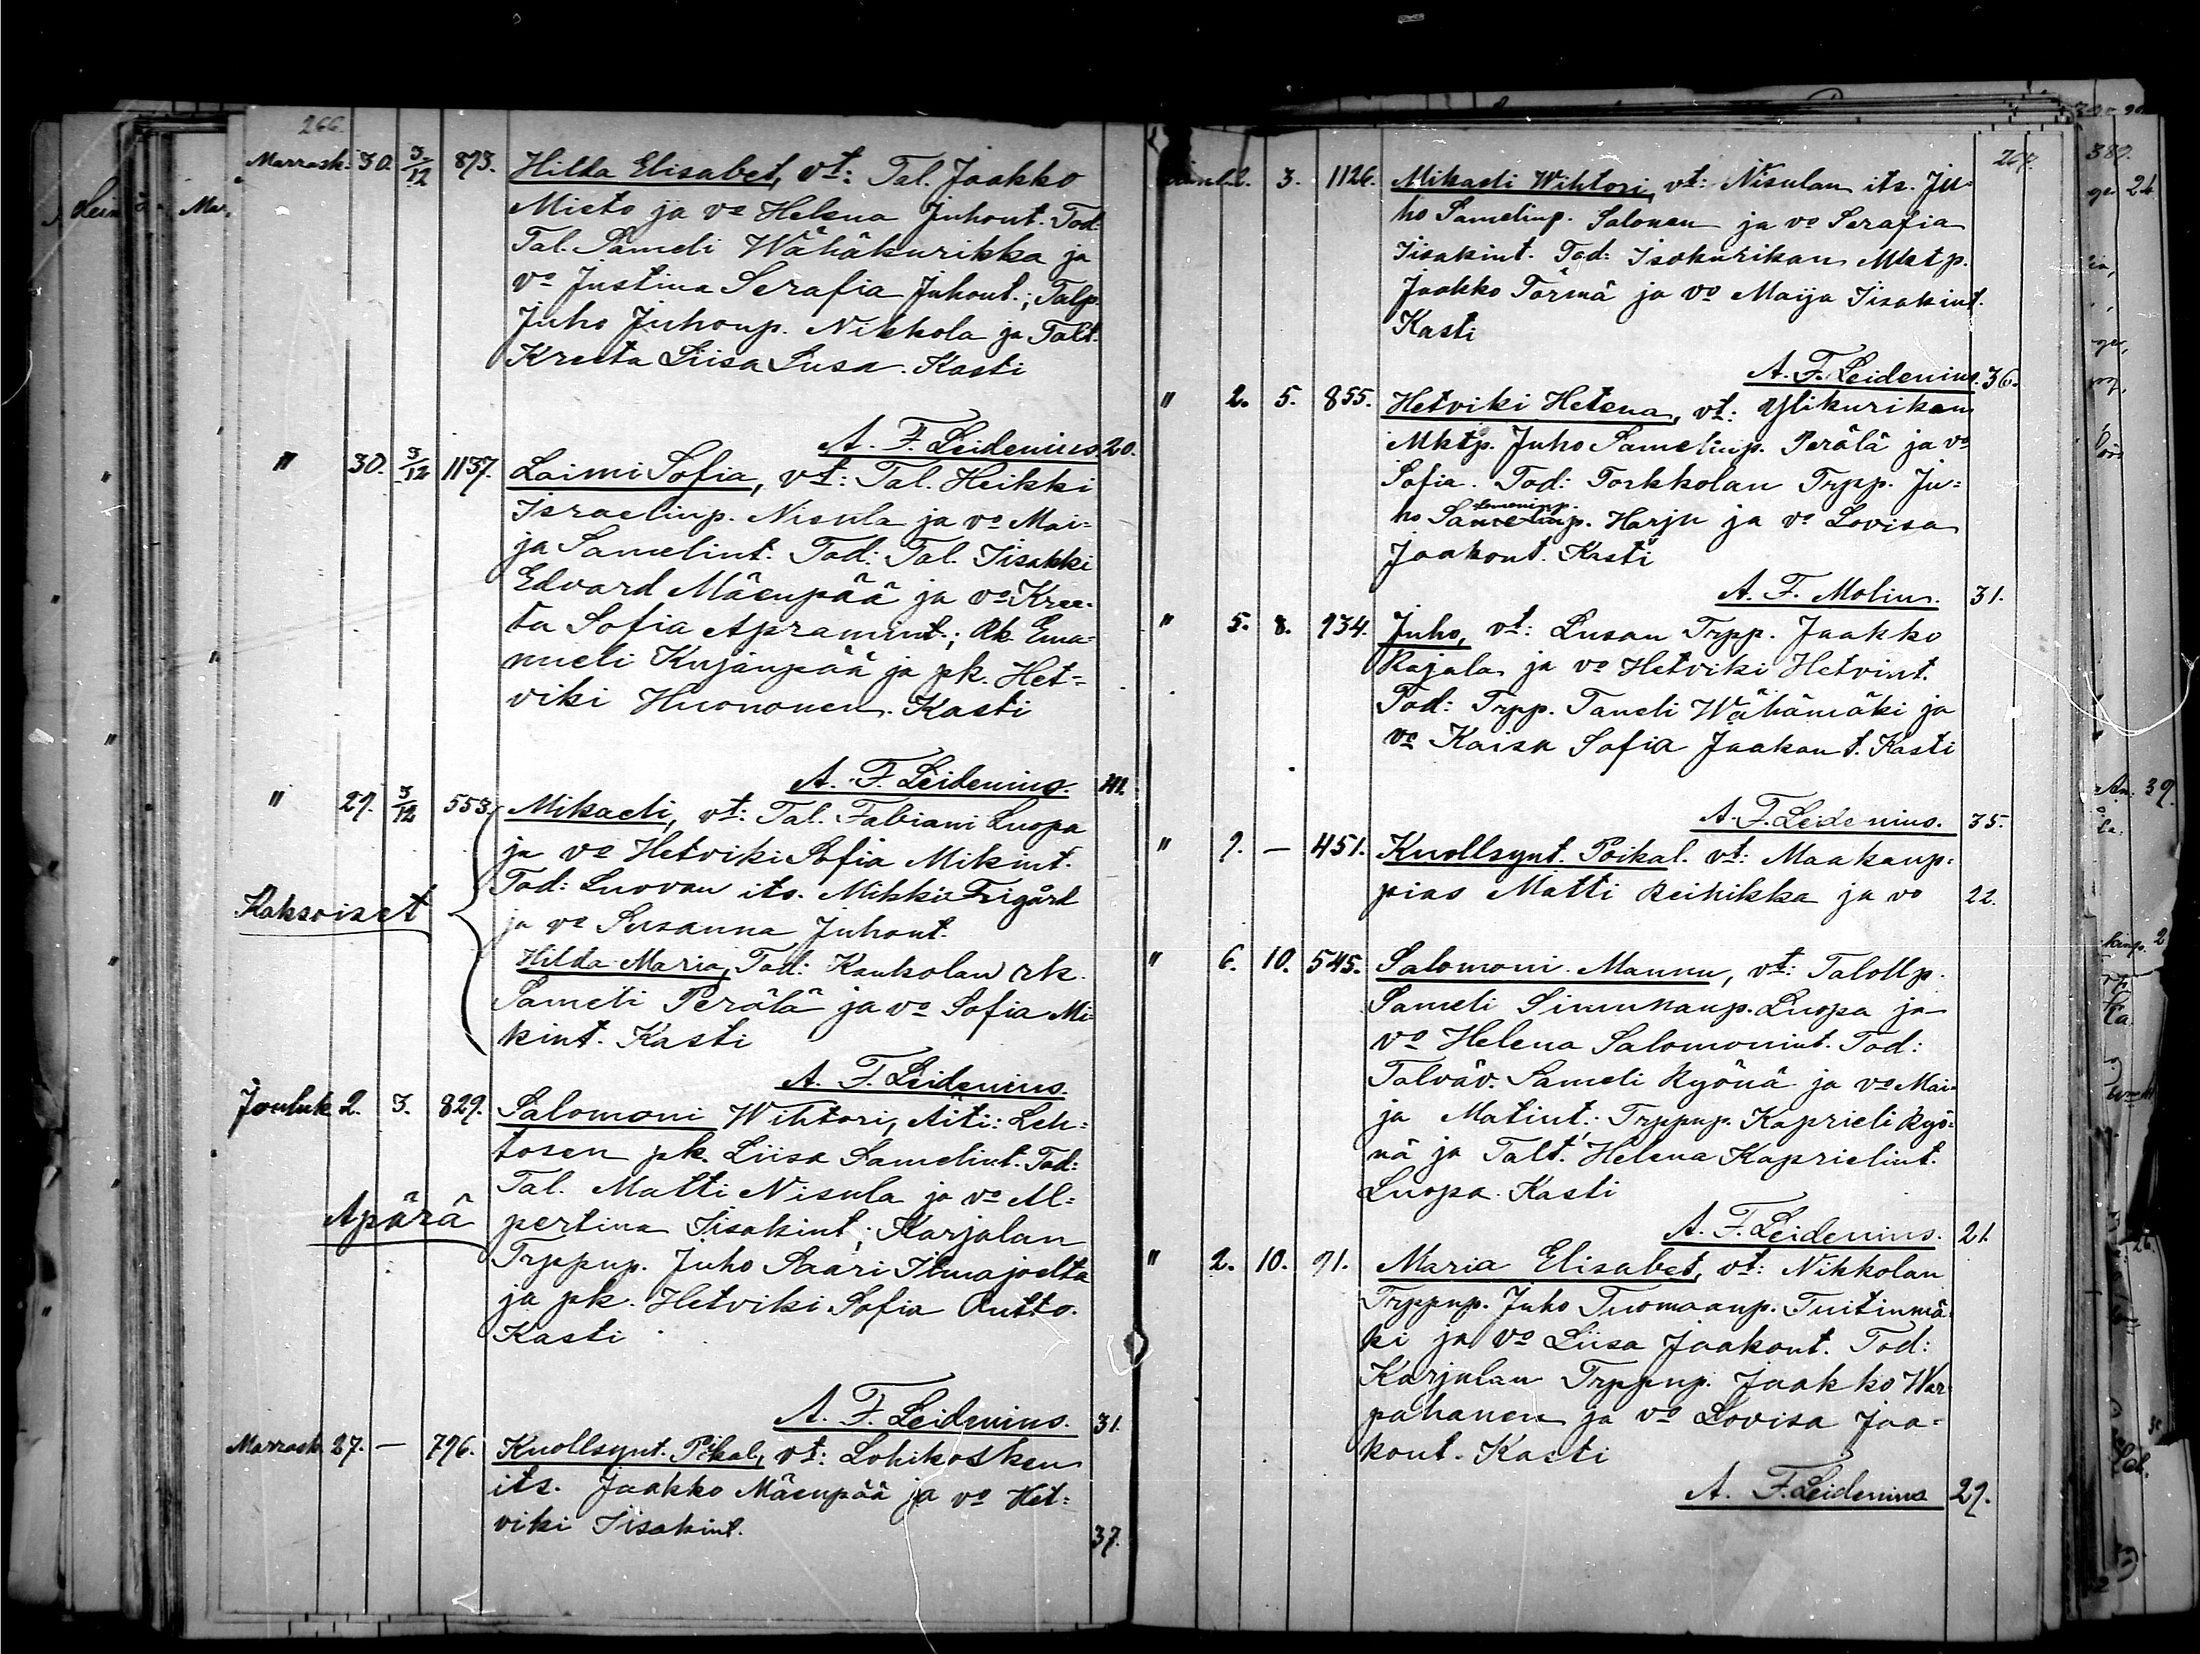 266.
Marrask. 30. 3/12 873. Hilda Elisabet, vt: Tal. Jaakko
Mieto ja vo Helena Juhont. Tod:
Tal. Sameli Wähäkurikka ja
vo Justina Serafia Juhont.; Talp.
Juho Juhonp. Nikkola ja Talt.
Kreeta Liisa Lusa. Kasti
A. F. Leidenius. 20.
" 30. 3/12 1137. Laimi Sofia, vt: Tal. Heikki
Israelinp. Nisula ja vo Mai-
ja Samelint. Tod: Tal. Iisakki
Edvard Mäenpää ja vo Kree-
ta Sofia Apramint.; Rk. Ema-
nueli Kujanpää ja pk. Het-
viki Huononen. Kasti
A. F. Leidenius.
" 29. 3/12 553. Mikaeli, vt: Tal. Fabiani Luopa
ja vo Hetviki Sofia Mikint.
Tod: Luovan its. Mikki Frigård
Kaksoiset
ja vo Susanna Juhont.
Hilda Maria, Tod: Kankolan rk.
Sameli Perälä ja vo Sofia Mi-
kint. Kasti
A. F. Leidenius.
Jouluk. 2. 3. 829. Salomoni Wihtori, Äiti: Leh-
tosen pk. Liisa Samelint. Tod:
Tal. Matti Nisula ja vo Al-
Apärä
pertina Iisakint.; Karjalan
Trppnp. Juho Saari Ilmajoelta
ja pk. Hetviki Sofia Antto.
Kasti
A. F. Leidenius. 31.
Marrask. 27. — 796. Kuollsynt. Poikal, vt: Lohikosken
its. Jaakko Mäenpää ja vo Het-
viki Iisakint.
37.
267.
2. 3. 1126. Mikaeli Wihtori, vt: Nisulan its. Ju-
ho Samelinp. Salonen ja vo Serafia
Iisakint. Tod: Isokurikan Mktp.
Jaakko Törmä ja vo Maija Iisakint.
Kasti
A. F. Leidenius. 36.
" 2. 5. 855. Hetviki Helena, vt: Ylikurikan
Mktp. Juho Samelinp. Perälä ja vo
Sofia. Tod: Torkkolan Trpp. Ju-
ho Samelinp. Harju ja vo Lovisa
Jaakont. Kasti
A. F. Molin. 31.
" 5. 8. 934. Juho, vt: Lusan Trpp. Jaakko
Rajala ja vo Hetviki Hetvint.
Tod: Trpp. Taneli Wähämäki ja
vo Kaisa Sofia Jaakont. Kasti
A. F. Leidenius. 35.
" 9. — 451. Kuollsynt. Poikal. vt: Maakaup-
pias Matti Reinikka ja vo 22.
" 6. 10. 545. Salomoni Mannu, vt: Talollp.
Sameli Simunanp. Luopa ja
vo Helena Salomonint. Tod:
Talväv. Sameli Ryönä ja vo Mai-
ja Matint.; Trppnp. Kaprieli Ryö-
nä ja Talt. Helena Kaprielint.
Luopa. Kasti
A. F. Leidenius. 21.
" 2. 10. 91. Maria Elisabet, vt: Nikkolan
Trppnp. Juho Tuomaanp. Tuitinmä-
ki ja vo Liisa Jaakont. Tod:
Karjalan Trppnp. Jaakko War-
pahanen ja vo Lovisa Jaa-
kont. Kasti
A. F. Leidenius 29.